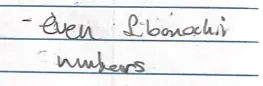 - even fibonachir
numbers